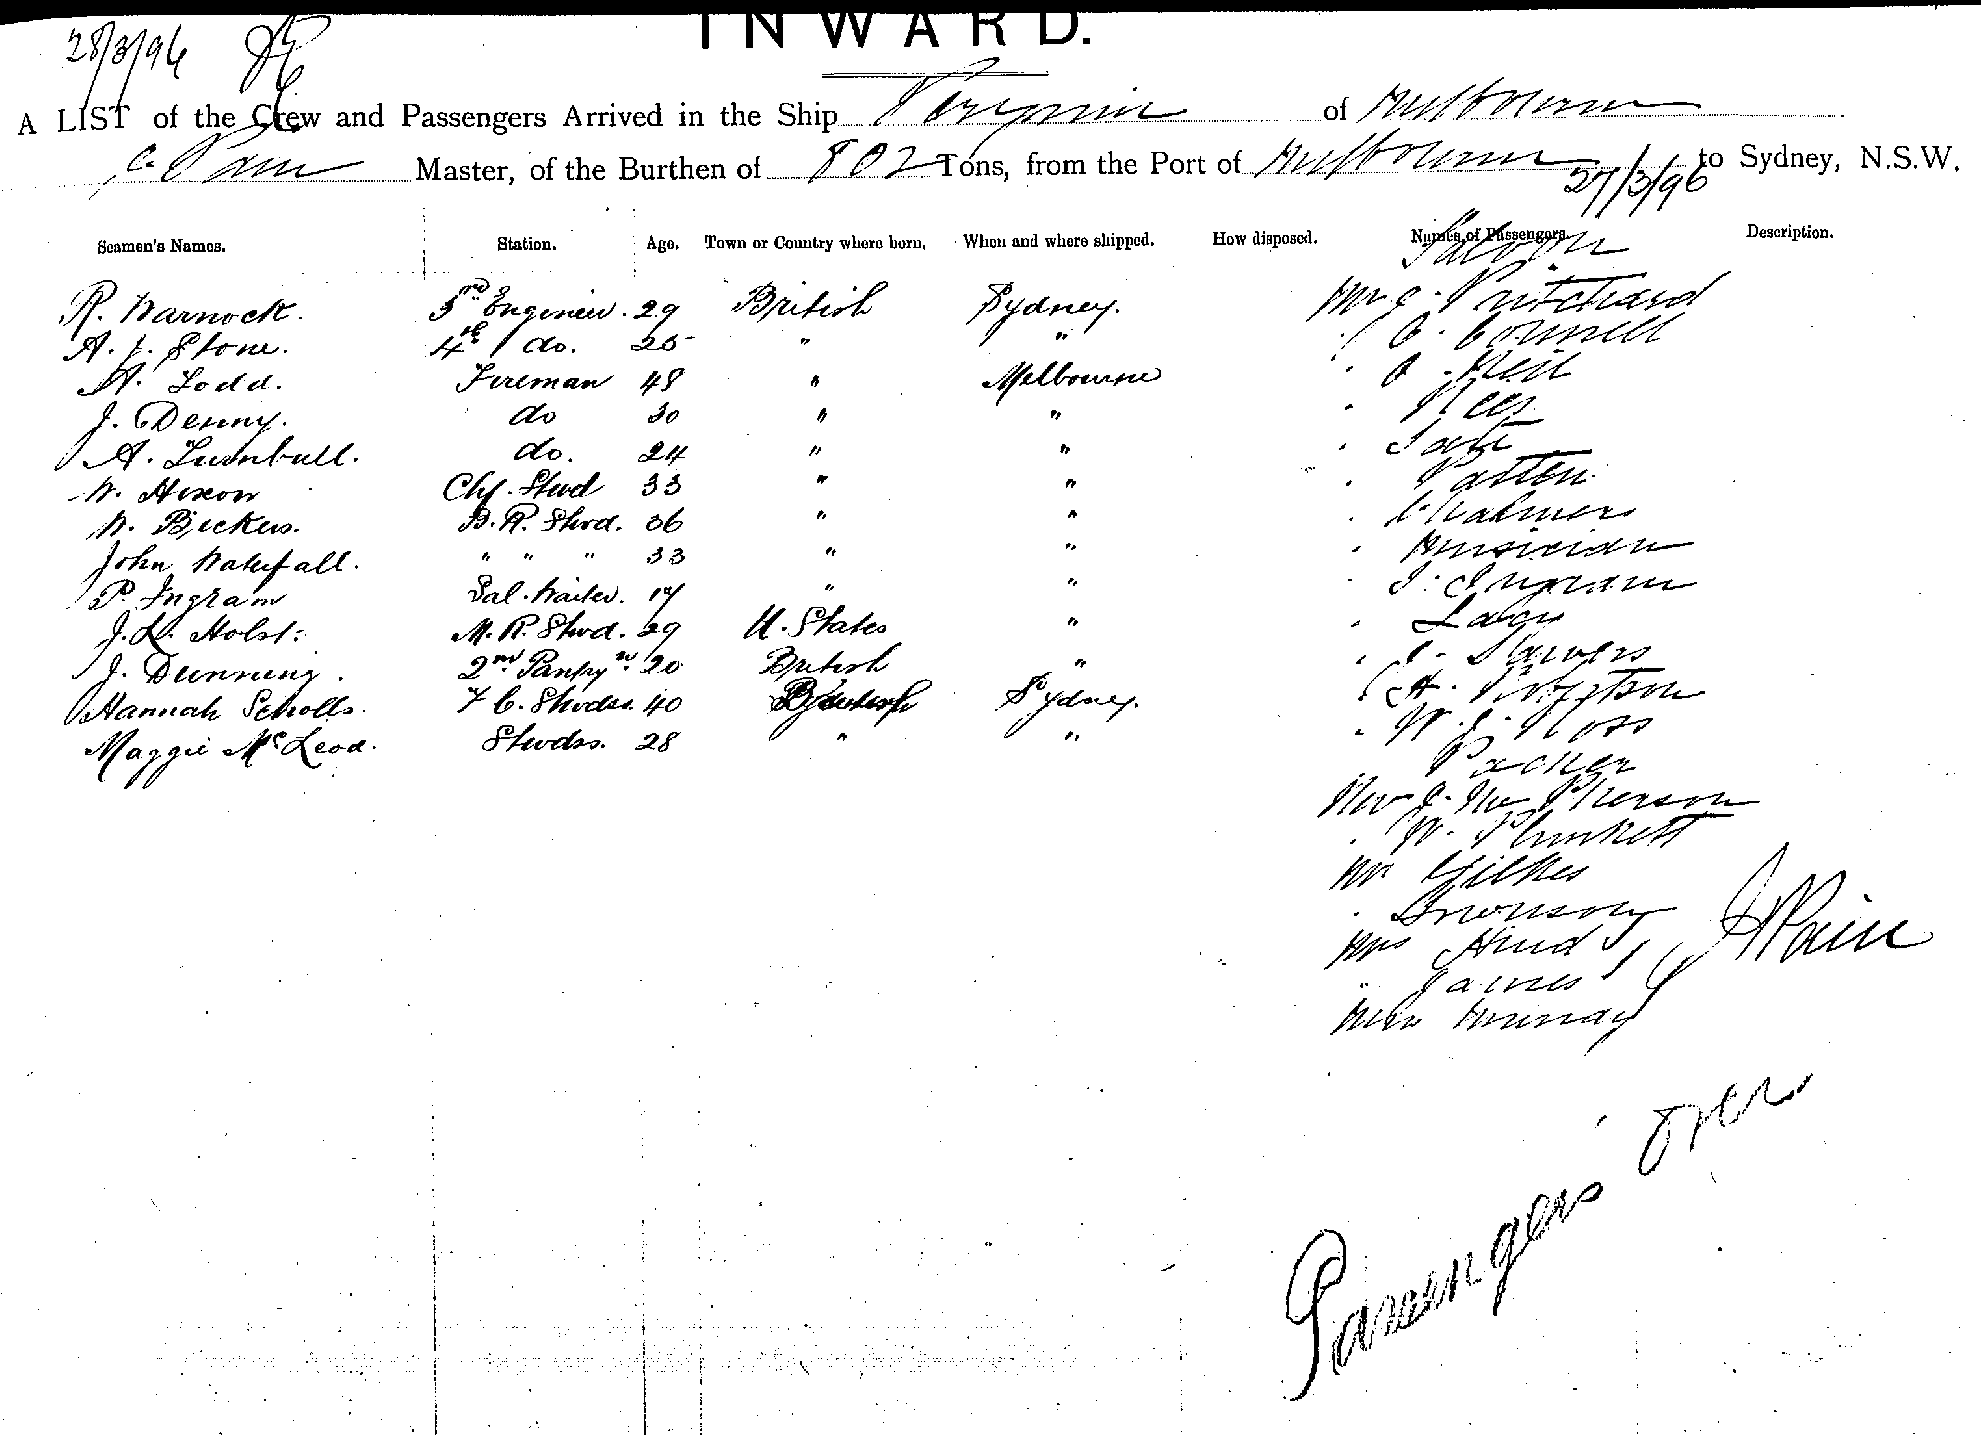 28/3/96
INWARD.
A LIST of the Crew and Passengers Arrived in the Ship of Melbourne
Master, of the Burthen of 802 Tons, from the Port of Melbourne to Sydney, N.S.W.
27/3/96
Seamen's Names. Station. Age. Town or Country where born. When and where shipped. How disposed. Names of Passengers. Description.
Saloon
R. Warnock. 3rd Engineer. 29 British Sydney. Mr J. Pritchard
A. J. Stone. 4th do. 25 " " " C. Connell
A. Todd. Fireman 48 " Melbourne " Neil
J. Denny. do 30 " " "
A. Turnbull. do. 24 " " " Tait
W. Hixon Chf. Stwd 33 " " " Patten
W. Bickers. B. R. Stwd. 36 " " " Chalmers
John Waterfall. " " " 33 " " "
P. Ingram Sal. Waiter. 17 " " " J. Ingram
J. L. Holst: M. R. Stwd. 29 U. States " " Lacy
J. Dunning. 2nd Pantryn. 20 British " "
Hannah Scholls. F C. Stwdss. 40 Sydney. "
Maggie McLeod. Stwdss. 28 " " " W. J. Ross
Packer
J. McPherson
" W. Plunkett
Mr Gilkes
"
Mrs Hind
" James
Miss Murray
Passengers over